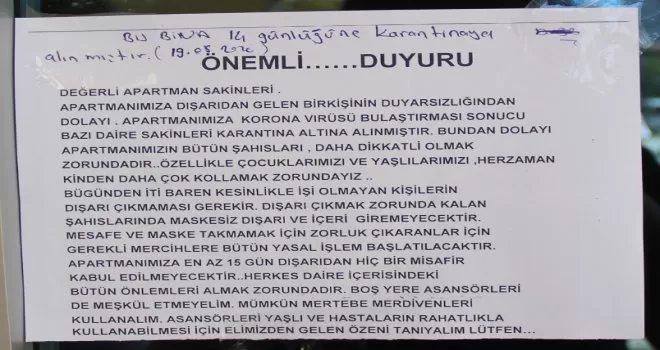 BU BINA 14 günlüğüne karantinaya
alınmıştır. (19.05.2020)
ÖNEMLİ......DUYURU
DEĞERLİ APARTMAN SAKİNLERİ .
APARTMANIMIZA DIŞARIDAN GELEN BİRKİŞİNİN DUYARSIZLIĞINDAN
DOLAYI . APARTMANIMIZA KORONA VİRÜSÜ BULAŞTIRMASI SONUCU
BAZI DAİRE SAKİNLERİ KARANTİNA ALTINA ALINMIŞTIR. BUNDAN DOLAYI
APARTMANIMIZIN BÜTÜN ŞAHISLARI , DAHA DİKKATLİ OLMAK
ZORUNDADIR..ÖZELLİKLE ÇOCUKLARIMIZI VE YAŞLILARIMIZI ,HERZAMAN
KİNDEN DAHA ÇOK KOLLAMAK ZORUNDAYIZ ..
BÜGÜNDEN İTİ BAREN KESİNLİKLE İŞİ OLMAYAN KİŞİLERİN
DIŞARI ÇIKMAMASI GEREKİR. DIŞARI ÇIKMAK ZORUNDA KALAN
ŞAHISLARINDA MASKESİZ DIŞARI VE İÇERİ GİREMEYECEKTİR.
MESAFE VE MASKE TAKMAMAK İÇİN ZORLUK ÇIKARANLAR İÇİN
GEREKLİ MERCİHLERE BÜTÜN YASAL İŞLEM BAŞLATILACAKTIR.
APARTMANIMIZA EN AZ 15 GÜN DIŞARIDAN HİÇ BİR MİSAFİR
KABUL EDİLMEYECEKTİR..HERKES DAİRE İÇERİSİNDEKİ
BÜTÜN ÖNLEMLERİ ALMAK ZORUNDADIR. BOŞ YERE ASANSÖRLERİ
DE MEŞKÜL ETMEYELİM. MÜMKÜN MERTEBE MERDİVENLERİ
KULLANALIM. ASANSÖRLERİ YAŞLI VE HASTALARIN RAHATLIKLA
KULLANABİLMESİ İÇİN ELİMİZDEN GELEN ÖZENİ TANIYALIM LÜTFEN...